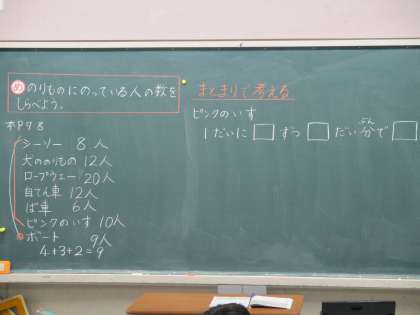 め のりものにのっている人の数を
しらべよう。
本P78
シーソー 8人
犬ののりもの 12人
ロープウェー 20人
自てん車 12人
ば車 6人
ピンクのいす 10人
ボート 9人
4+3+2=9
まとまりで考える
ピンクのいす
1だいに□ずつ□だい分で□
ぶん